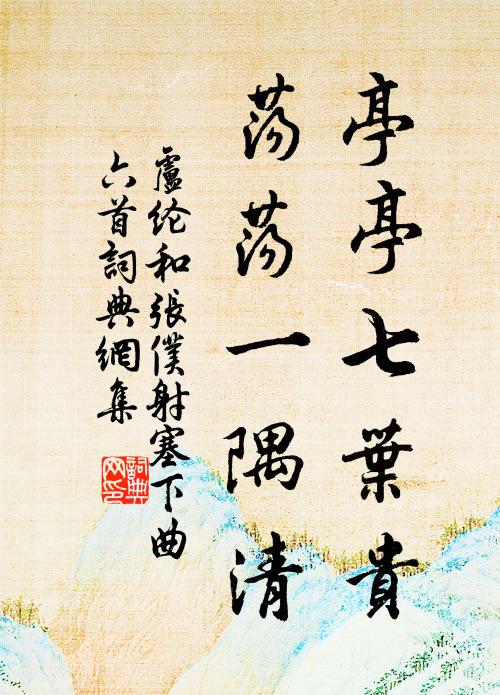 亭亭七葉貴
荡荡一隅清
盧纶和張僕射塞下曲
六首詞典網集
詞典網印